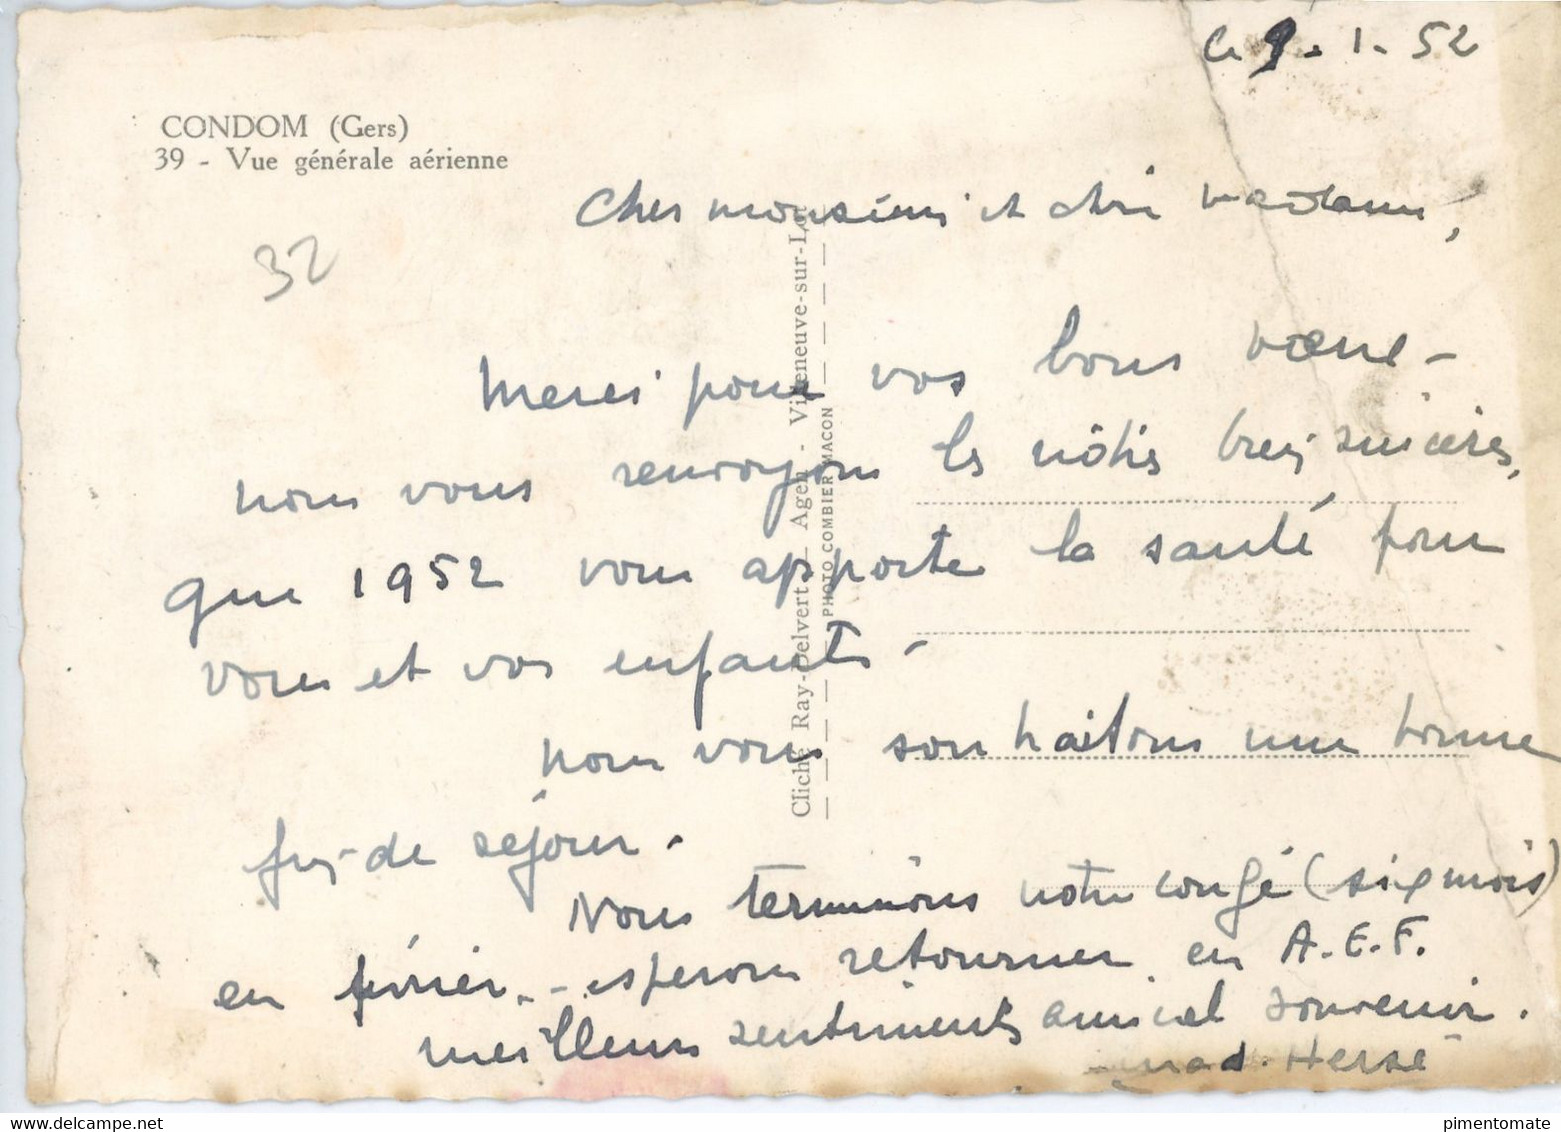 Le 9-1-52
CONDOM (Gers)
39 - Vue générale aérienne
32
Cher monsieur et chère madame,
Merci pour vos bons vœux -
nous vous renvoyons les nôtres très sincères,
que 1952 vous apporte la santé pour
vous et vos enfants -
nous vous souhaitons une bonne
fin de séjour -
Nous terminons notre congé (six mois)
en février - espérons retourner en A.E.F.
meilleurs sentiments amical souvenir.
Hersé
Cliché Ray-Delvert - Agen - Villeneuve-sur-Lot
PHOTO COMBIER MACON
pimentomate